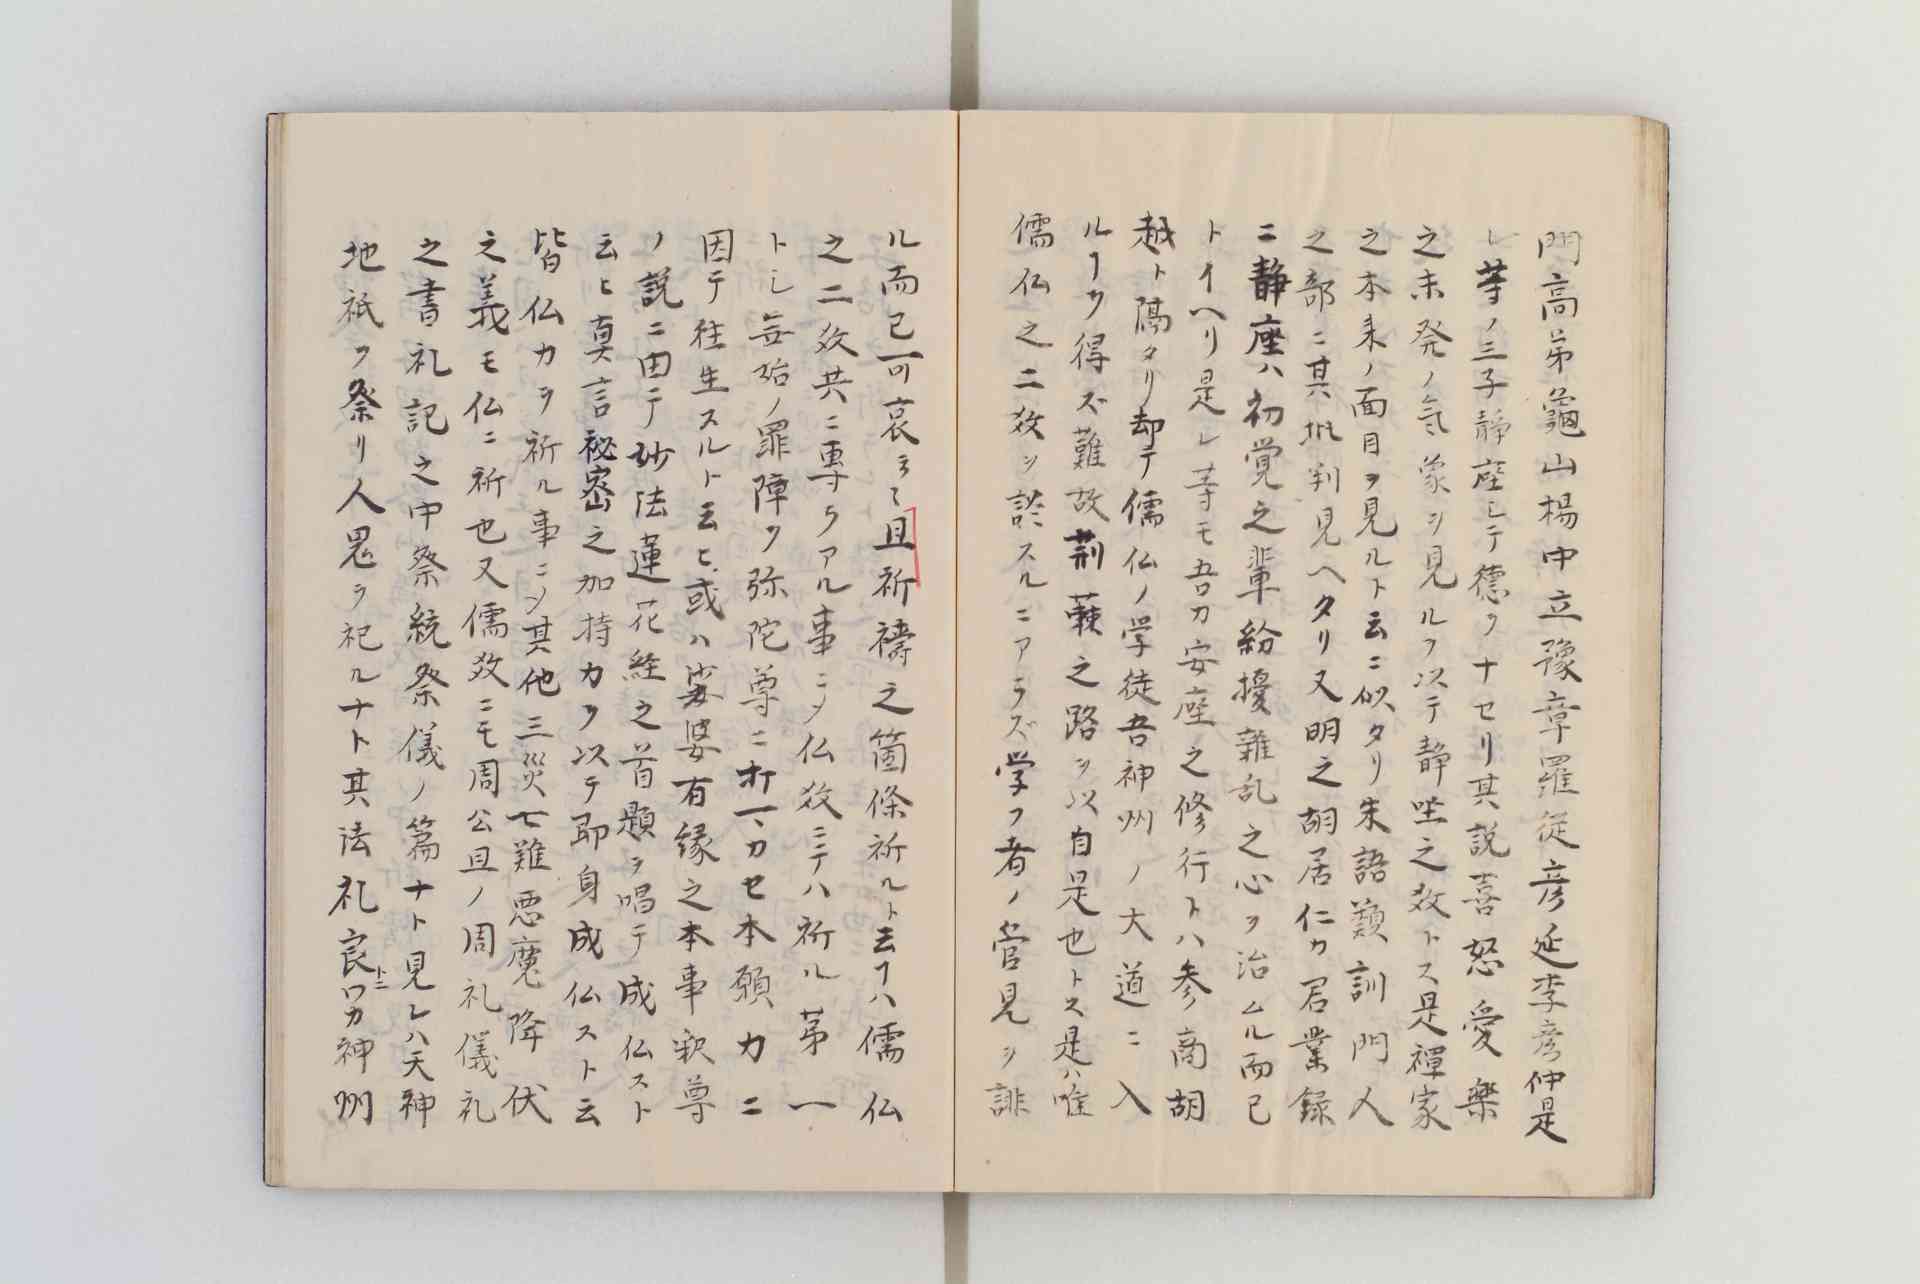 門高弟龜山楊中立豫章羅從彦延李彦仲是
レ等ノ三子静座シテ德ヲナセリ其説喜怒愛樂
之未発ノ氣象ヲ見ルヲ以テ静坐之教トス是禪家
之本来ノ面目ヲ見ルト云ニ似タリ朱語類訓門人
之部ニ其批判見ヘタリ又明之胡居仁カ居業録
ニ静座ハ初覚之輩紛擾雜乱之心ヲ治ムル而已
トイヘリ是レ等モ吾カ安座之修行トハ参商胡
越ト隔タリ却テ儒仏ノ学徒吾神州ノ大道ニ入
ルヿヲ得ズ難故荊蕀之路ヲ以自是也トス是ハ唯
儒仏之二教ヲ謗スルニアラズ学フ者ノ管見ヲ誹
ル而已可哀ヲヤ且祈禱之箇條祈ルト云フハ儒仏
之二教共ニ専ラアル事ニメ仏教ニテハ祈ル第一
トシ無始ノ罪障ヲ弥陀尊ニ打マカセ本願力ニ
因テ往生スルト云ヒ或ハ娑婆有縁之本事釈尊
ノ説ニ由テ妙法蓮花経之首題ヲ唱テ成仏スト
云ヒ真言秘密之加持力ヲ以テ即身成仏スト云
皆仏力ヲ祈ル事ニメ其他三災七難悪魔降伏
之義モ仏ニ祈也又儒教ニモ周公旦ノ周礼儀礼
之書礼記之中祭統祭儀ノ篇ナト見レハ天神
地祇ヲ祭リ人鬼ヲ祀ルナト其法礼良ワカ神州